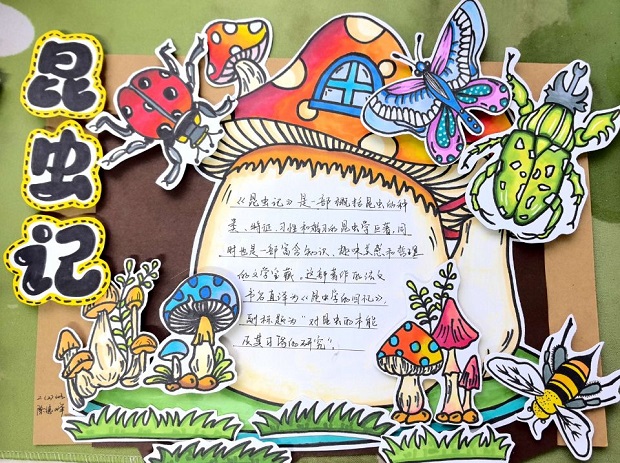 昆虫记
《昆虫记》是一部概括昆虫的种
类、特征、习性和婚习的昆虫学巨著,同
时也是一部富含知识、趣味美感和哲理
的文学宝藏。这部著作的法文
书名直译为《昆虫学的回忆》,
副标题为“对昆虫的本能
及其习俗的研究”。